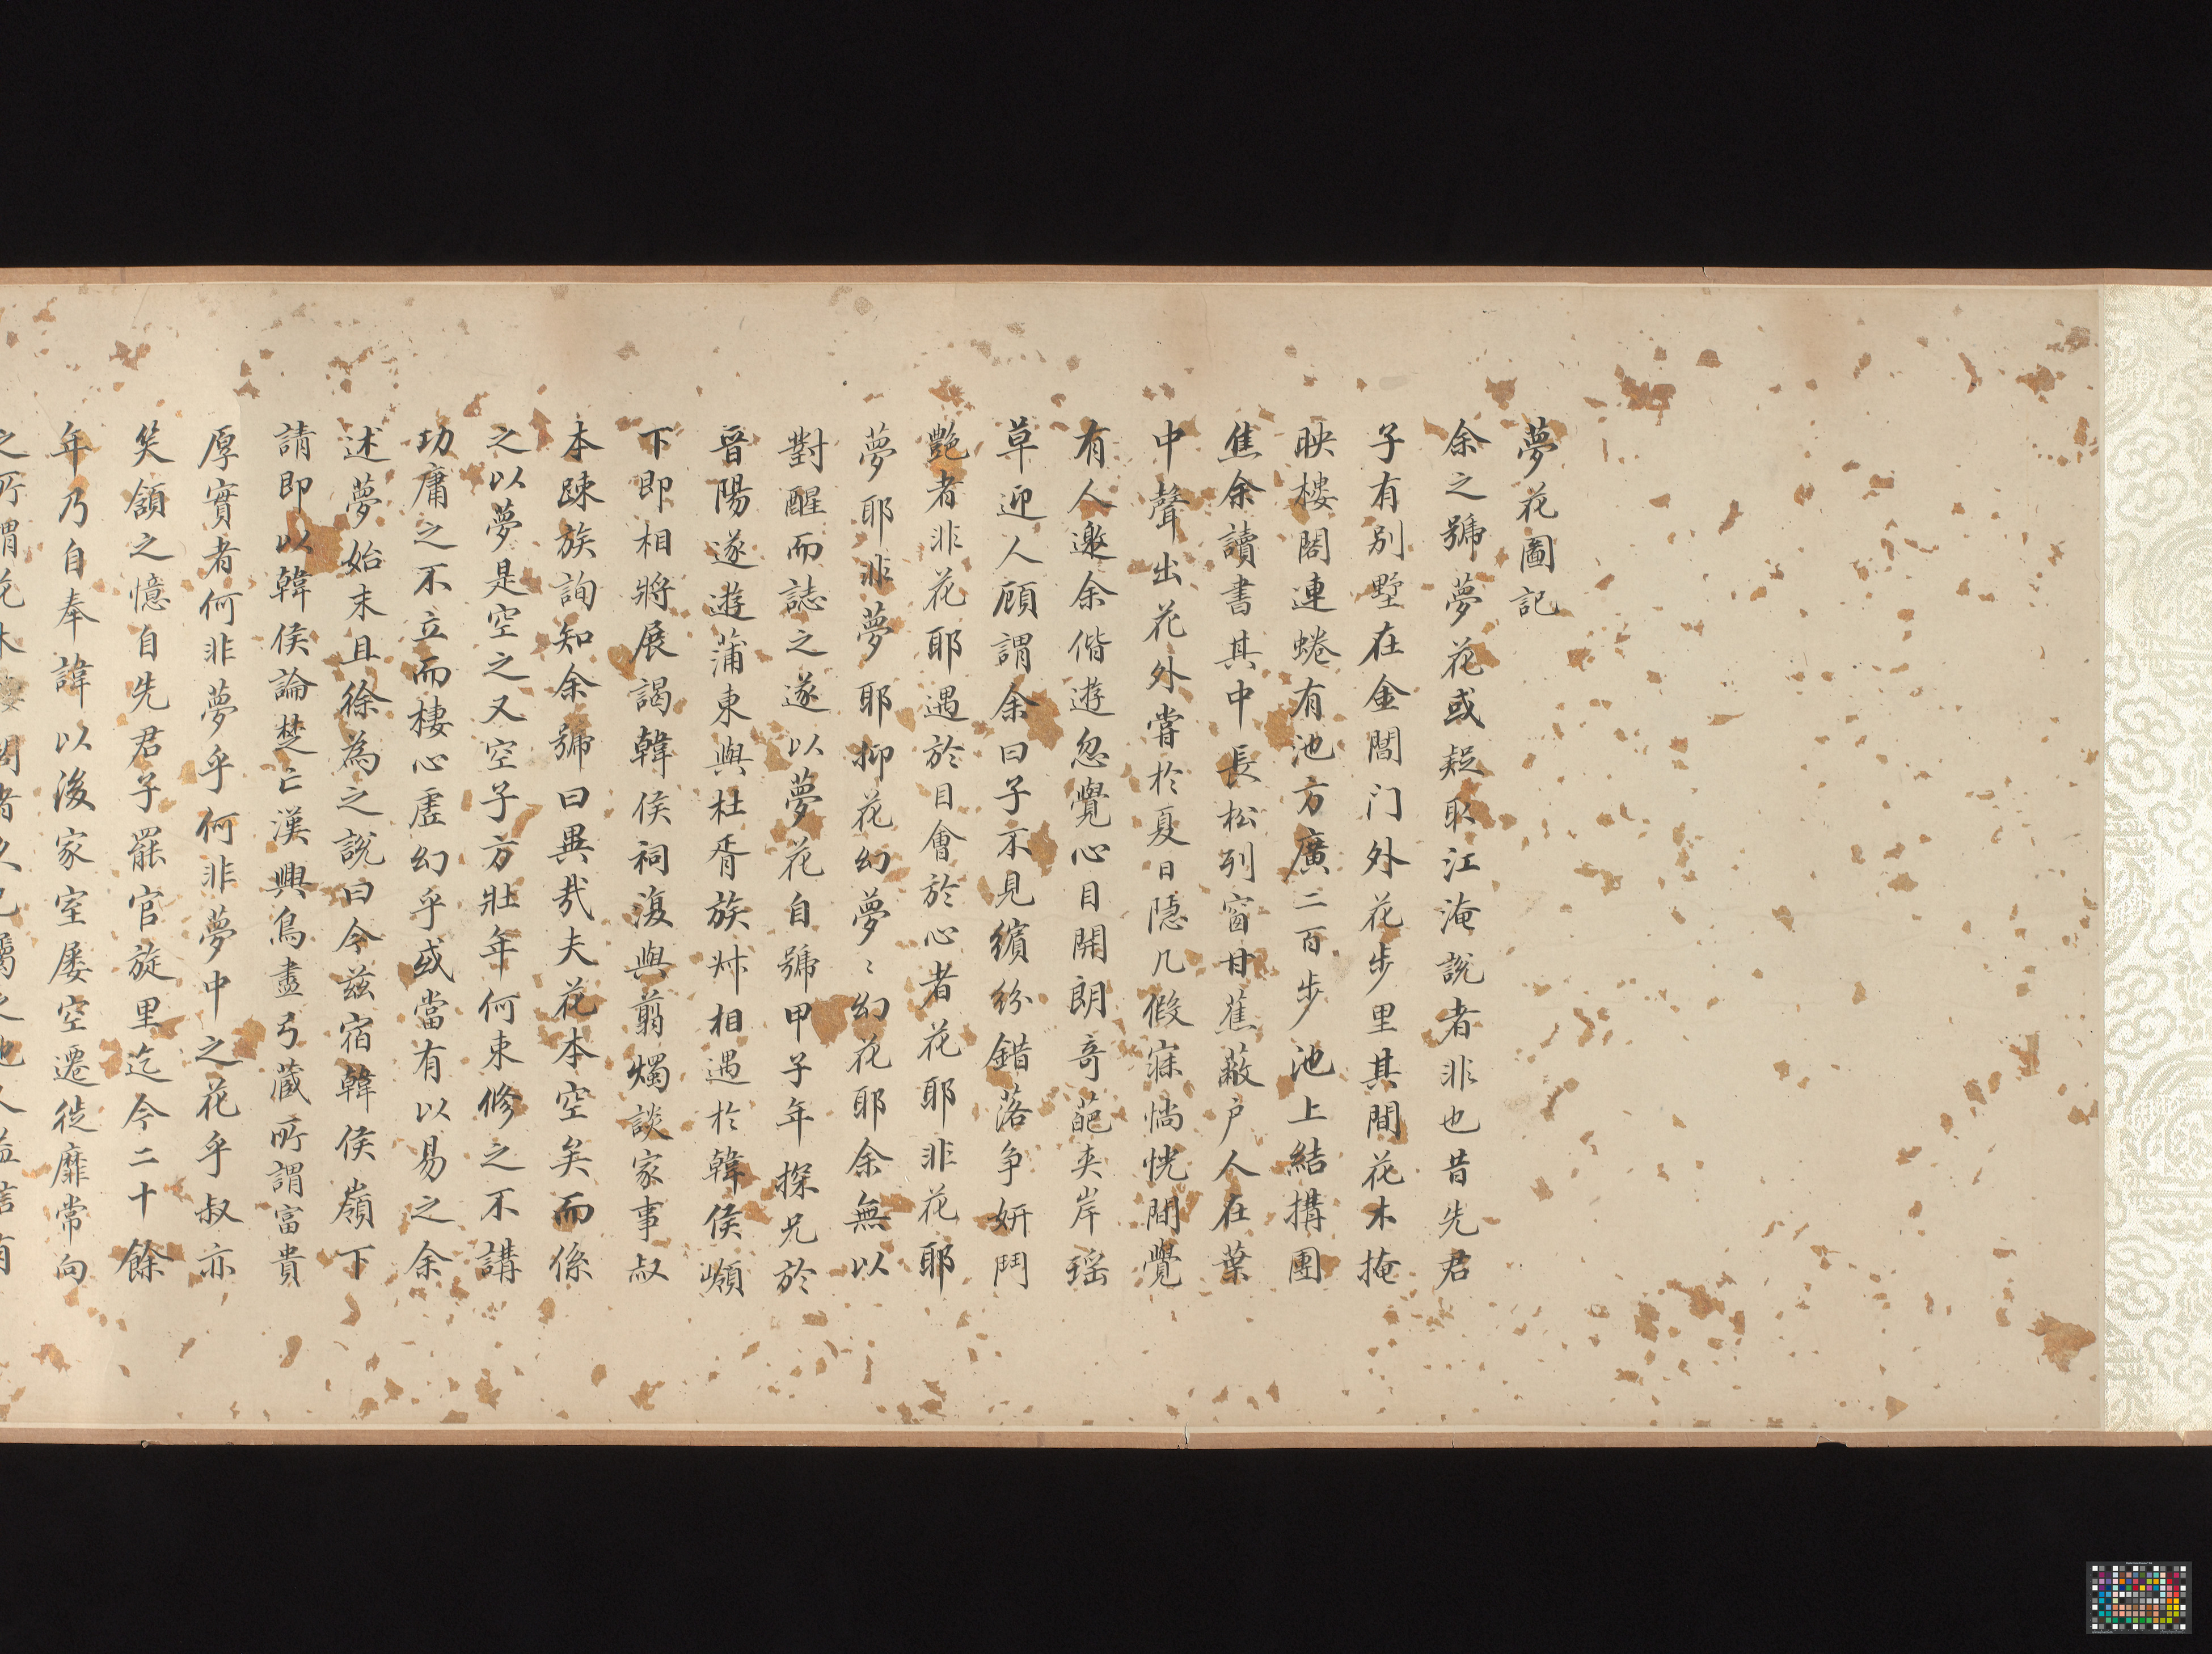 夢花圖記
余之號夢花或疑取江淹說者非也昔先君
子有別墅在金閶门外花步里其間花木掩
映樓閣連蜷有池方廣二百步池上結構團
焦余讀書其中長松列窗甘蕉蔽户人在葉
中聲出花外嘗於夏日隱几假寐惝恍間覺
有人邀余偕遊忽覺心目開朗奇葩夾岸瑶
草迎人顧謂余曰子不見繽紛錯落争妍鬥
艶者非花耶遇於目會於心者花耶非花耶
夢耶非夢耶抑花幻夢〻幻花耶余無以
對醒而誌之遂以夢花自號甲子年探兄於
晉陽遂遊蒲東與杜胥族叔相遇於韓侯嶺
下即相將展謁韓侯祠復與翦燭談家事叔
本疎族詢知余號曰異哉夫花本空矣而係
之以夢是空之又空子方壯年何束修之不講
功庸之不立而棲心虛幻乎或當有以易之余
述夢始末且徐為之說曰今茲宿韓侯嶺下
請即以韓侯論楚亡漢興鳥盡弓藏所謂富貴
厚實者何非夢乎何非夢中之花乎叔亦
笑頷之憶自先君子罷官旋里迄今二十餘
年乃自奉諱以後家室屢空遷徙靡常向
之所謂花木樓閣者久已屬之他人益信有